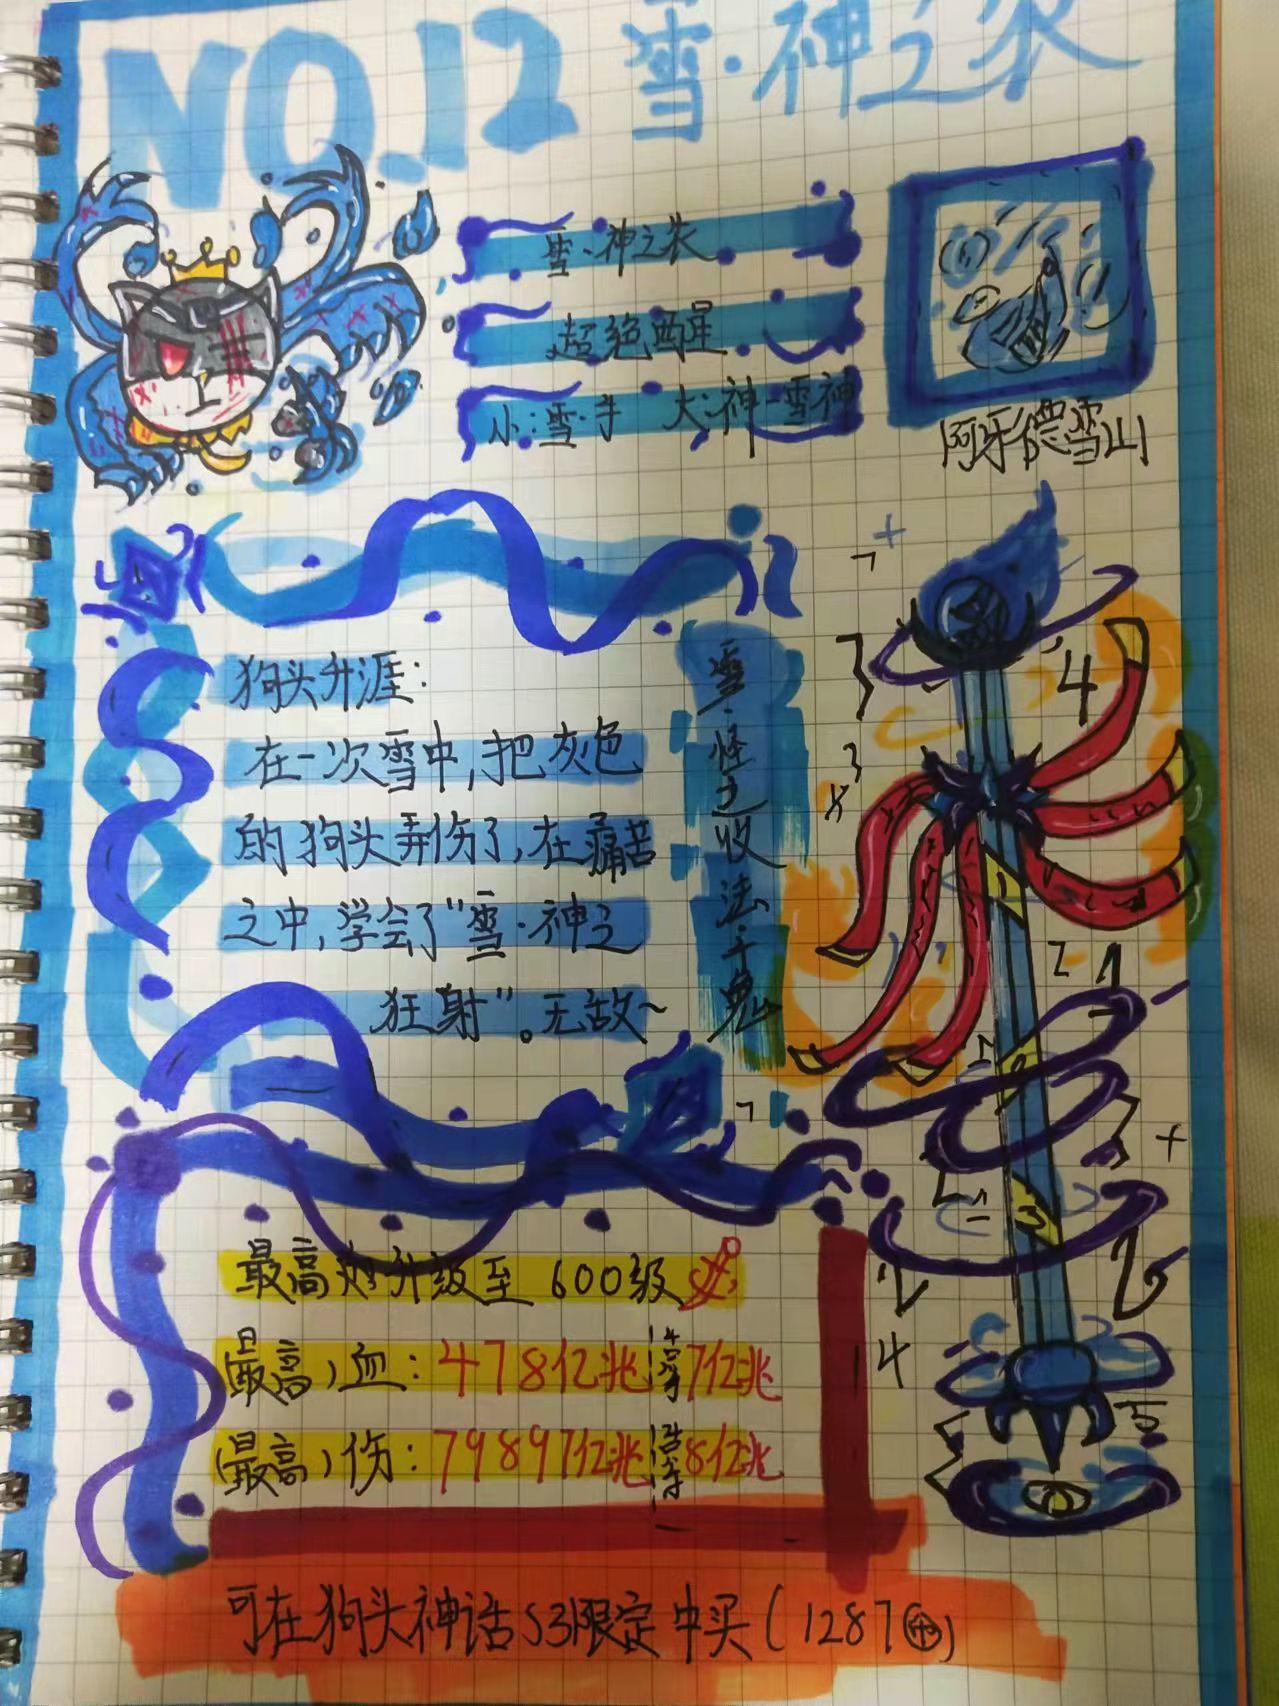 NO.12 雪·神之衣
雪·神之衣
超绝醒
小:雪·手 大:神-雪神
阿牙儂雪山
狗头升涯:
在一次雪中,把灰色
的狗头弄伤了,在痛苦
之中,学会了"雪·神之
狂射"。无敌~
雪·怪之收法于鬼
4
3
2 1
1
2
3
4
5
最高 升级至 600级
(最高)血: 478亿兆 7亿兆
(最高)伤: 79897亿兆 8亿兆
可在狗头神话S3限定中买(1287 )